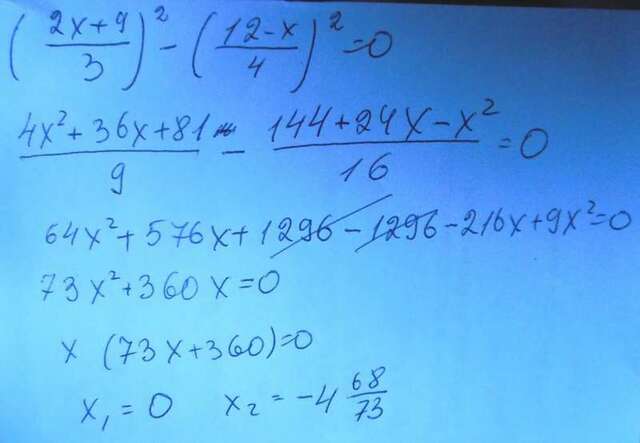 (2x+9/3)² - (12-x/4)² = 0
4x²+36x+81/9 - 144+24x-x²/16 = 0
64x²+576x+1296-1296-216x+9x²=0
73x²+360x=0
x (73x+360)=0
x₁ = 0 x₂ = -4 68/73